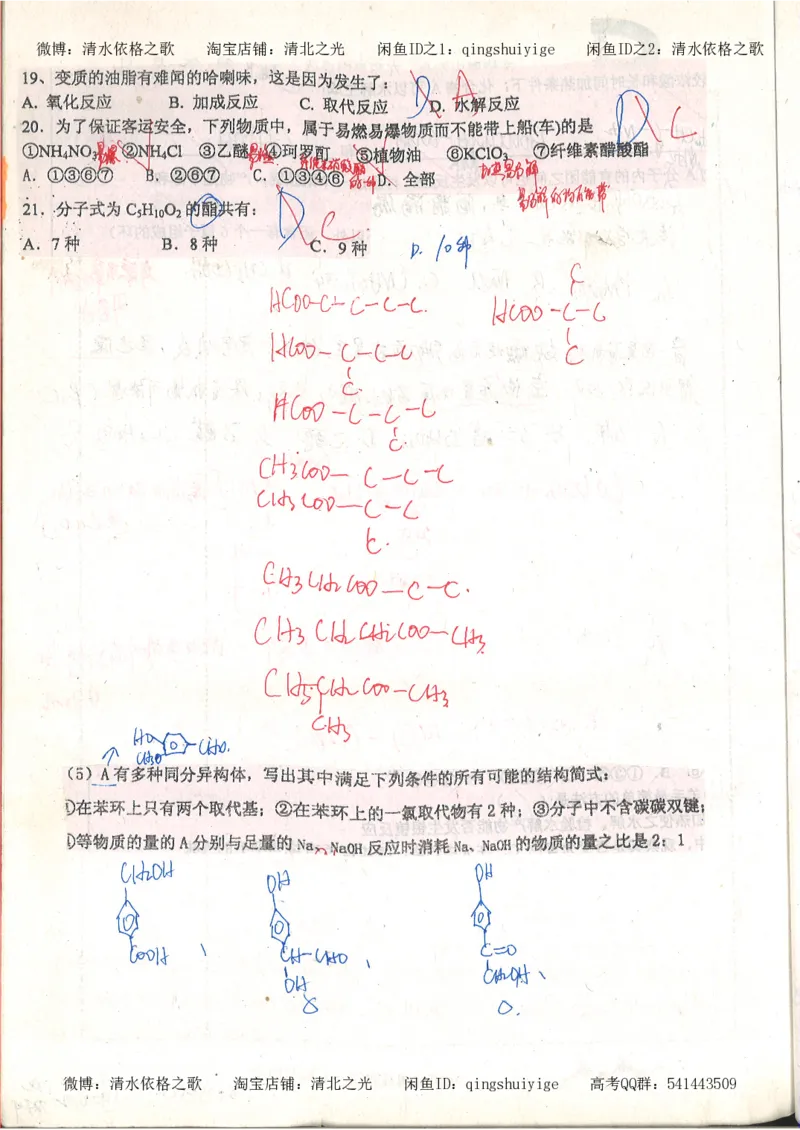 微博：清水依格之歌 淘宝店铺：清北之光 闲鱼ID之1：qingshuiyige 闲鱼ID之2：清水依格之歌
19、变质的油脂有难闻的哈喇味，这是因为发生了： D A
A．氧化反应 B．加成反应 C．取代反应 D．水解反应
20．为了保证客运安全，下列物质中，属于易燃易爆物质而不能带上船(车)的是 D C
①NH₄NO₃ ②NH₄Cl ③乙醚 ④珂罗酊 ⑤植物油 ⑥KClO₃ ⑦纤维素醋酸酯
易爆 易燃
A．①③⑥⑦ B．②⑥⑦ C．①③④⑥ D．全部
的一种
21．分子式为 C₅H₁₀O₂ 的酯共有： D C
A．7 种 B．8 种 C．9 种 D. 10种
HCOO-C-C-C-C.
C
HCOO-C-C
C
HCOO-C-C-C
C
HCOO-C-C-C
C
CH3COO-C-C-C
CH3COO-C-C
C
CH3CH2COO-C-C.
CH3CH2CH2COO-CH3
CH3CHCH2COO-CH3
CH3
HO CHO.
CH3O
（5）A 有多种同分异构体，写出其中满足下列条件的所有可能的结构简式：
①在苯环上只有两个取代基；②在苯环上的一氯取代物有 2 种；③分子中不含碳碳双键；
④等物质的量的 A 分别与足量的 Na、NaOH 反应时消耗 Na、NaOH 的物质的量之比是 2：1
CH2OH OH OH
COOH 、 CH-CHO 、 C=O
OH CH2OH、
微博：清水依格之歌 淘宝店铺：清北之光 闲鱼ID：qingshuiyige 高考QQ群：541443509